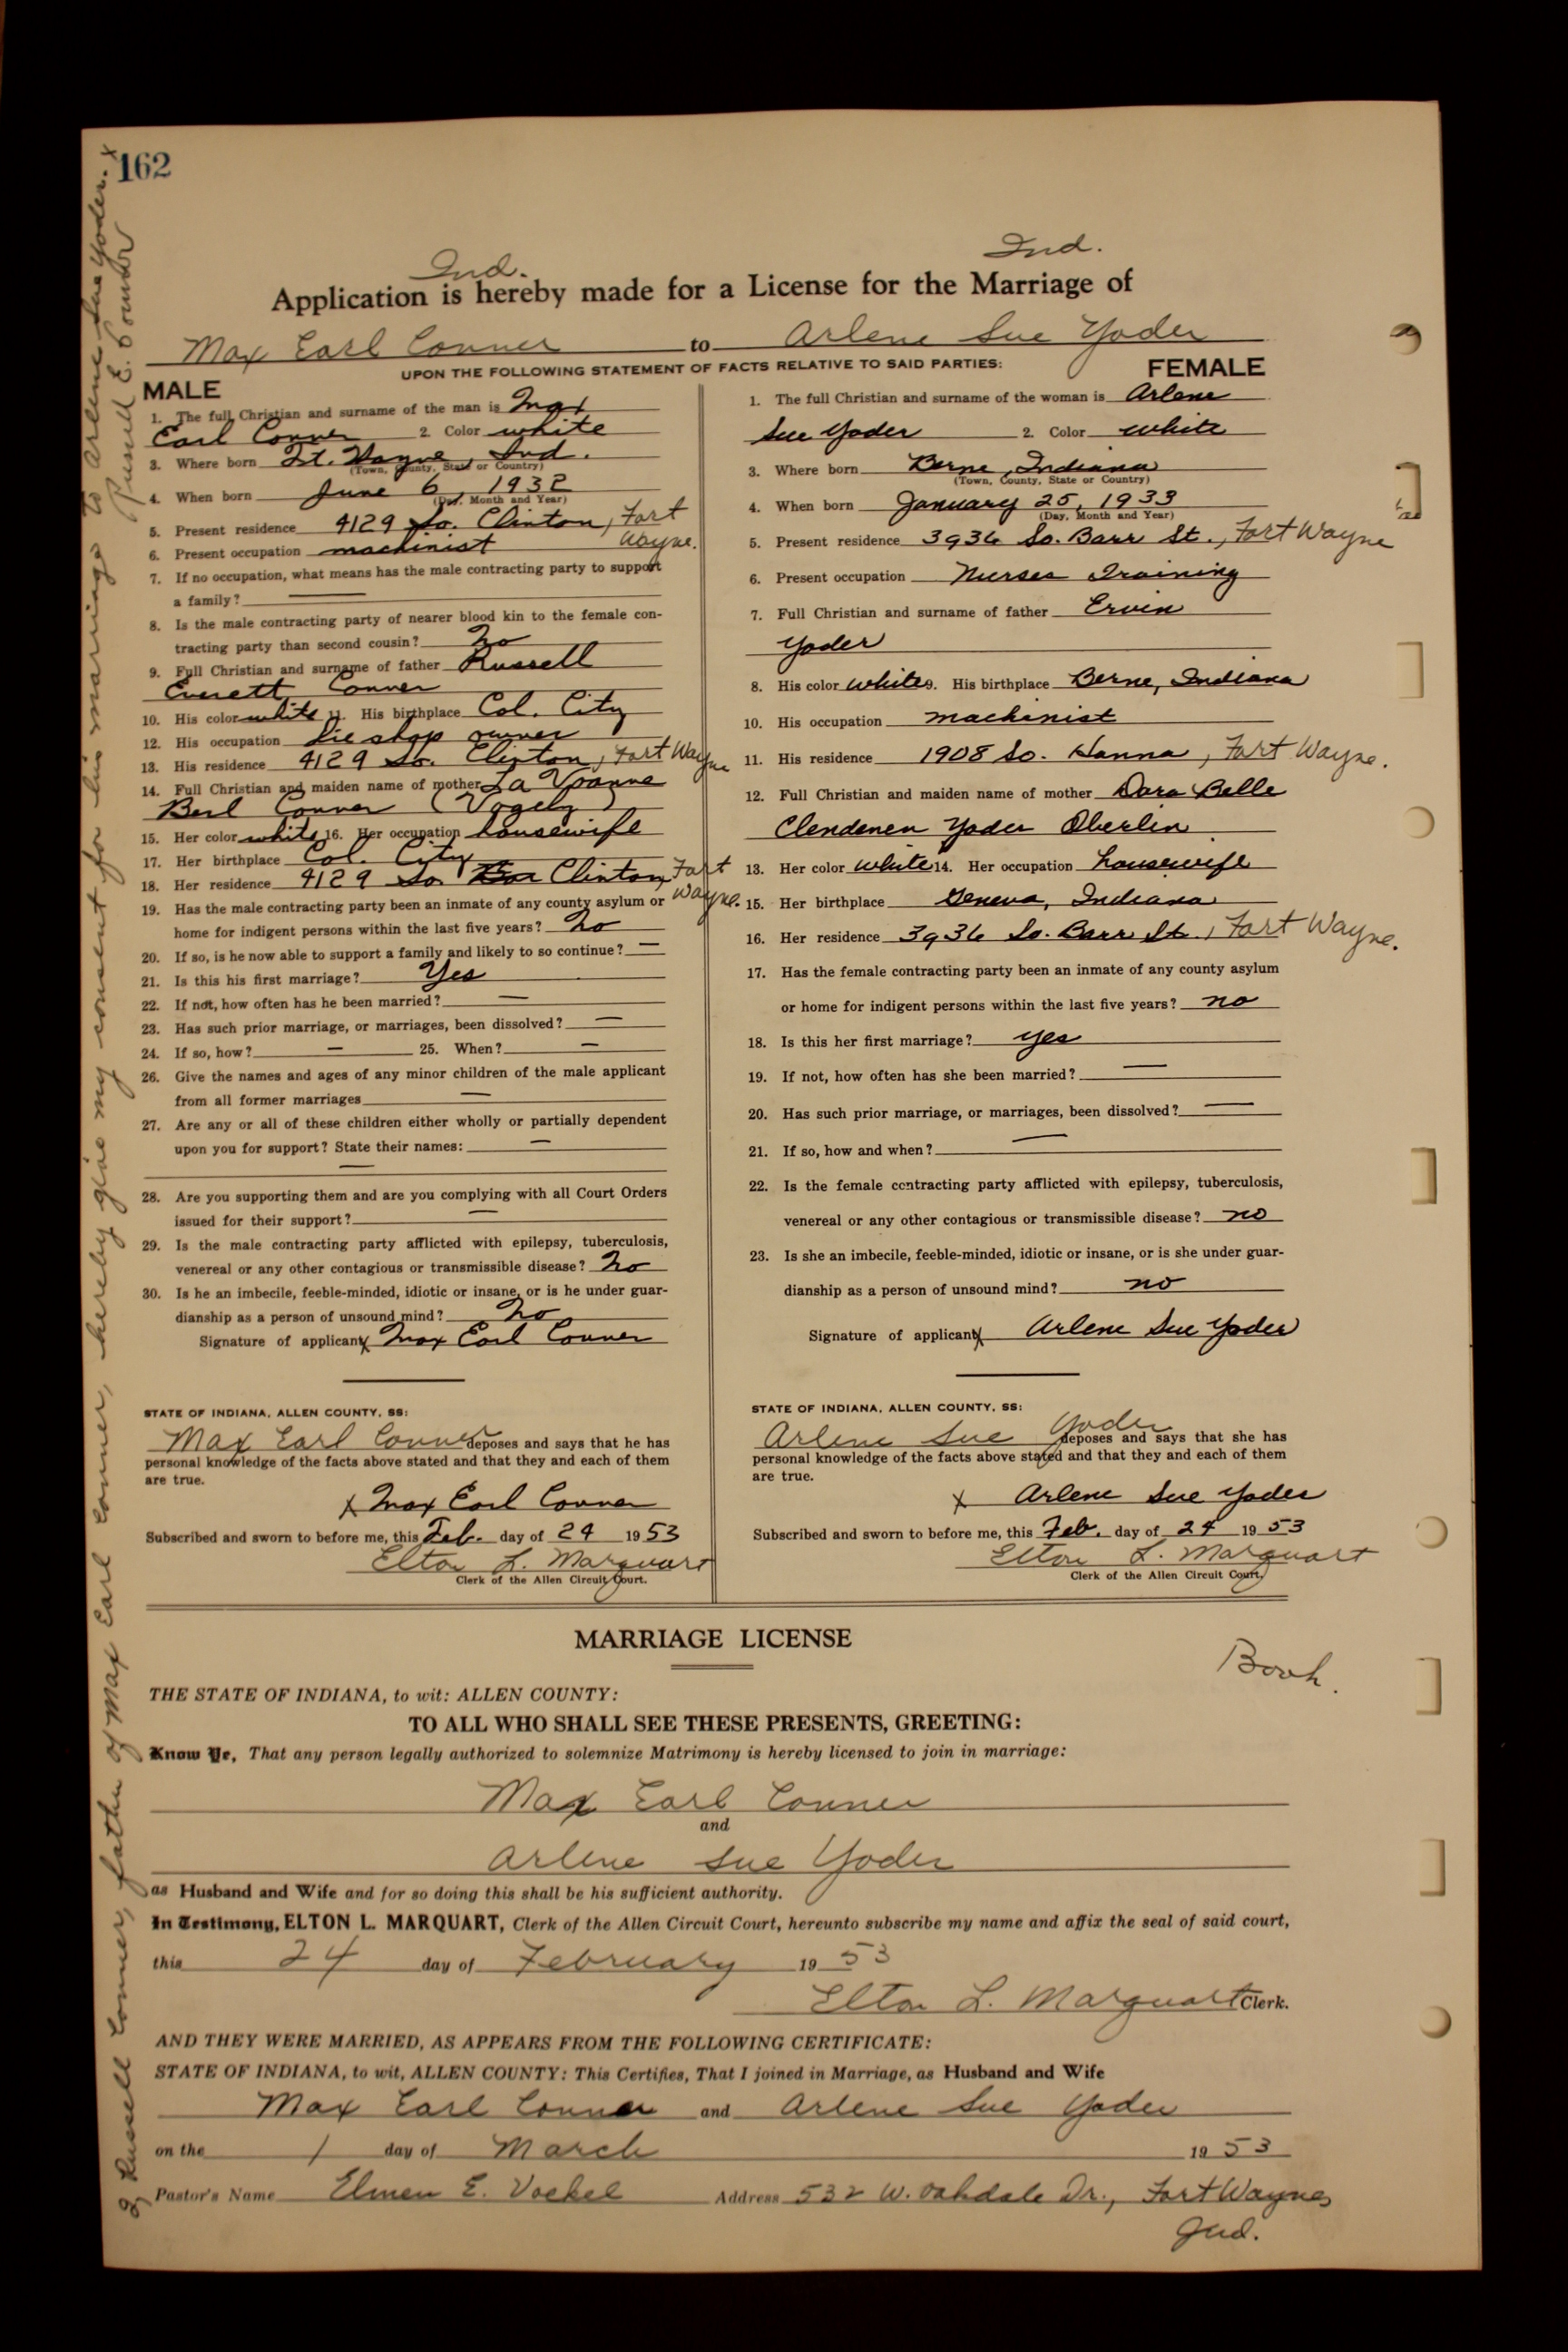 162
Ind.
Ind.
Application is hereby made for a License for the Marriage of
Max Earl Conner to Arlene Sue Yoder
UPON THE FOLLOWING STATEMENT OF FACTS RELATIVE TO SAID PARTIES:
MALE
1. The full Christian and surname of the man is Max
Earl Conner 2. Color white
3. Where born Ft. Wayne, Ind.
(Town, County, State or Country)
4. When born June 6, 1932
(Day, Month and Year)
5. Present residence 4129 So. Clinton, Fort
Wayne.
6. Present occupation machinist
7. If no occupation, what means has the male contracting party to support
a family? —
8. Is the male contracting party of nearer blood kin to the female con-
tracting party than second cousin? No
9. Full Christian and surname of father Russell
Everett Conner
10. His color white 11. His birthplace Col. City
12. His occupation Die shop owner
13. His residence 4129 So. Clinton, Fort Wayne
14. Full Christian and maiden name of mother La Voanne
Berl Conner (Vogely)
15. Her color white 16. Her occupation housewife
17. Her birthplace Col. City
18. Her residence 4129 So Clinton Fort
Wayne.
19. Has the male contracting party been an inmate of any county asylum or
home for indigent persons within the last five years? No
20. If so, is he now able to support a family and likely to so continue? —
21. Is this his first marriage? Yes
22. If not, how often has he been married? —
23. Has such prior marriage, or marriages, been dissolved? —
24. If so, how? — 25. When? —
26. Give the names and ages of any minor children of the male applicant
from all former marriages —
27. Are any or all of these children either wholly or partially dependent
upon you for support? State their names: —
—
28. Are you supporting them and are you complying with all Court Orders
issued for their support? —
29. Is the male contracting party afflicted with epilepsy, tuberculosis,
venereal or any other contagious or transmissible disease? No
30. Is he an imbecile, feeble-minded, idiotic or insane, or is he under guar-
dianship as a person of unsound mind? No
Signature of applicant x Max Earl Conner
STATE OF INDIANA, ALLEN COUNTY, SS:
Max Earl Conner deposes and says that he has
personal knowledge of the facts above stated and that they and each of them
are true.
x Max Earl Conner
Subscribed and sworn to before me, this Feb. day of 24 1953
Elton L. Marquart
Clerk of the Allen Circuit Court.
FEMALE
1. The full Christian and surname of the woman is Arlene
Sue Yoder 2. Color white
3. Where born Berne, Indiana
(Town, County, State or Country)
4. When born January 25, 1933
(Day, Month and Year)
5. Present residence 3936 So. Barr St., Fort Wayne
6. Present occupation Nurses Training
7. Full Christian and surname of father Ervin
Yoder
8. His color white 9. His birthplace Berne, Indiana
10. His occupation machinist
11. His residence 1908 So. Hanna, Fort Wayne.
12. Full Christian and maiden name of mother Dora Belle
Clendenen Yoder Oberlin
13. Her color white 14. Her occupation housewife
15. Her birthplace Geneva, Indiana
16. Her residence 3936 So. Barr St., Fort Wayne.
17. Has the female contracting party been an inmate of any county asylum
or home for indigent persons within the last five years? no
18. Is this her first marriage? yes
19. If not, how often has she been married? —
20. Has such prior marriage, or marriages, been dissolved? —
21. If so, how and when? —
22. Is the female contracting party afflicted with epilepsy, tuberculosis,
venereal or any other contagious or transmissible disease? no
23. Is she an imbecile, feeble-minded, idiotic or insane, or is she under guar-
dianship as a person of unsound mind? no
Signature of applicant x Arlene Sue Yoder
STATE OF INDIANA, ALLEN COUNTY, SS:
Arlene Sue Yoder deposes and says that she has
personal knowledge of the facts above stated and that they and each of them
are true.
x Arlene Sue Yoder
Subscribed and sworn to before me, this Feb. day of 24 1953
Elton L. Marquart
Clerk of the Allen Circuit Court.
MARRIAGE LICENSE
Book.
THE STATE OF INDIANA, to wit: ALLEN COUNTY:
TO ALL WHO SHALL SEE THESE PRESENTS, GREETING:
Know Ye, That any person legally authorized to solemnize Matrimony is hereby licensed to join in marriage:
Max Earl Conner
and
Arlene Sue Yoder
as Husband and Wife and for so doing this shall be his sufficient authority.
In Testimony, ELTON L. MARQUART, Clerk of the Allen Circuit Court, hereunto subscribe my name and affix the seal of said court,
this 24 day of February 1953
Elton L. Marquart Clerk.
AND THEY WERE MARRIED, AS APPEARS FROM THE FOLLOWING CERTIFICATE:
STATE OF INDIANA, to wit, ALLEN COUNTY: This Certifies, That I joined in Marriage, as Husband and Wife
Max Earl Conner and Arlene Sue Yoder
on the 1 day of March 1953
Pastor's Name Elmer E. Voelkel Address 532 W. Oakdale Dr., Fort Wayne,
Ind.
I Russell Conner, father of Max Earl Conner, hereby give my consent for his marriage to Arlene Sue Yoder. x
Russell E. Conner